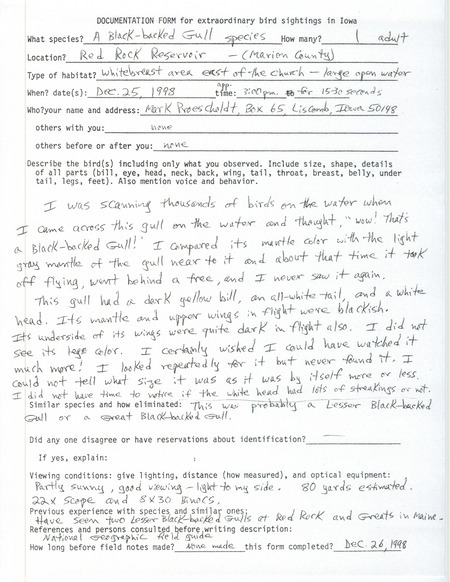 DOCUMENTATION FORM for extraordinary bird sightings in Iowa
What species? A Black-backed Gull species How many? 1 adult
Location? Red Rock Reservoir - (Marion County)
Type of habitat? Whitebreast area east of the church - large open water
When? date(s): Dec. 25, 1998 app. time: 3:00 p.m. for 15-30 seconds
Who? your name and address: Mark Proescholdt, Box 65, Liscomb, Iowa 50148
others with you: none
others before or after you: none
Describe the bird(s) including only what you observed. Include size, shape, details
of all parts (bill, eye, head, neck, back, wing, tail, throat, breast, belly, under
tail, legs, feet). Also mention voice and behavior.
I was scanning thousands of birds on the water when
I came across this gull on the water and thought, "wow! That's
a Black-backed Gull!" I compared its mantle color with the light
gray mantle of the gull near to it and about that time it took
off flying, went behind a tree, and I never saw it again.
This gull had a dark yellow bill, an all-white tail, and a white
head. Its mantle and upper wings in flight were blackish.
Its underside of its wings were quite dark in flight also. I did not
see its legs color. I certainly wished I could have watched it
much more! I looked repeatedly for it but never found it. I
could not tell what size it was as it was by itself more or less.
I did not have time to notice if the white head had lots of streakings or not.
Similar species and how eliminated: This was probably a Lesser Black-backed
Gull or a Great Black-backed Gull.
Did any one disagree or have reservations about identification?
If yes, explain:
Viewing conditions: give lighting, distance (how measured), and optical equipment:
Partly sunny, good viewing - light to my side. 80 yards estimated.
22x scope and 8x30 Binocs.
Previous experience with species and similar ones:
Have seen two Lesser Black-backed Gulls at Red Rock and Greats in Maine.
References and persons consulted before writing description:
National Geographic field guide
How long before field notes made? None made this form completed? Dec. 26, 1998